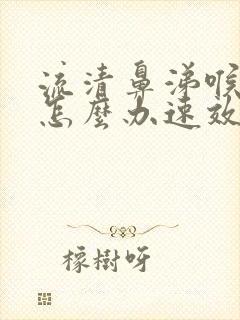 流清鼻涕喉
怎麼办速效
橡樹呀